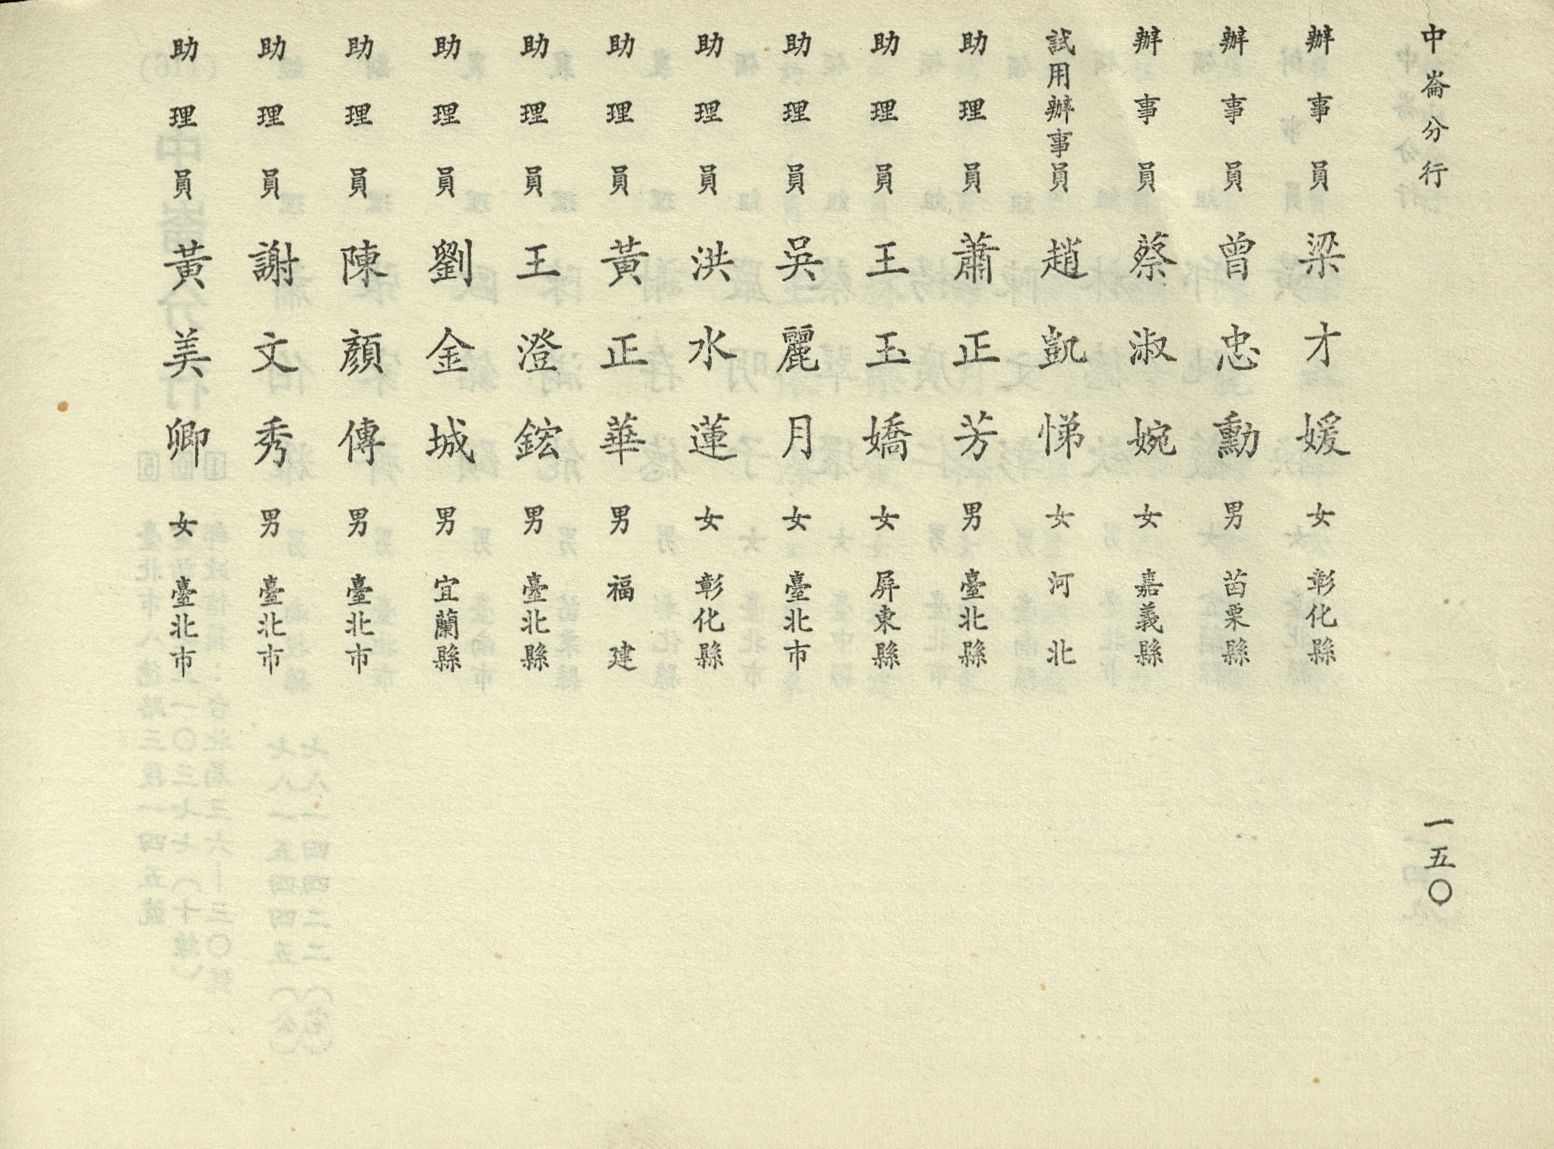 中崙分行 一五〇
辦事員 梁才媛 女 彰化縣
辦事員 曾忠勳 男 苗栗縣
辦事員 蔡淑婉 女 嘉義縣
試用辦事員 趙凱悌 女 河北
助理員 蕭正芳 男 臺北縣
助理員 王玉嬌 女 屏東縣
助理員 吳麗月 女 臺北市
助理員 洪水蓮 女 彰化縣
助理員 黃正華 男 福建
助理員 王澄鋐 男 臺北縣
助理員 劉金城 男 宜蘭縣
助理員 陳顏傳 男 臺北市
助理員 謝文秀 男 臺北市
助理員 黃美卿 女 臺北市